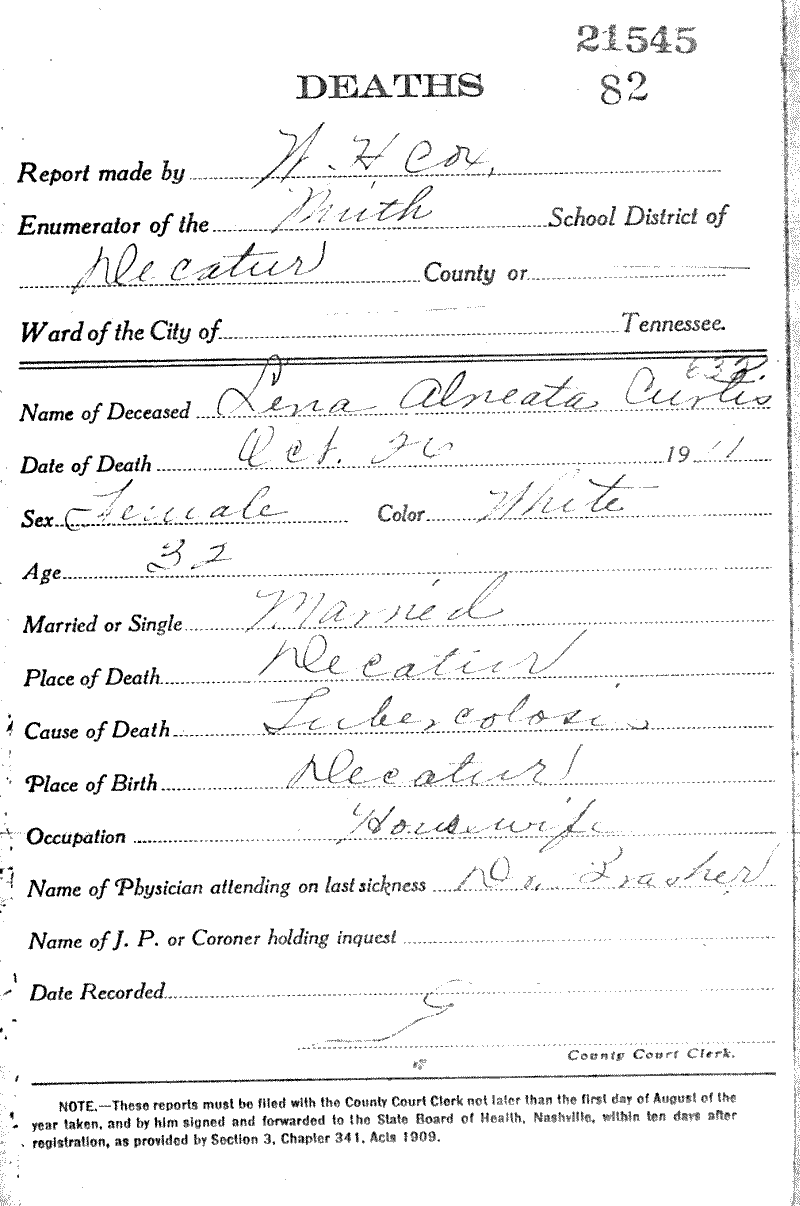 21545
DEATHS 82
Report made by W. H Cox,
Enumerator of the School District of
Decatur County or
Ward of the City of Tennessee.
632.
Name of Deceased Lena Alneata Curtis
Date of Death Oct. 26 1911
Sex Female Color White
Age 32
Married or Single Married
Place of Death Decatur
Cause of Death Tubercolosis
Place of Birth Decatur
Occupation Housewife
Name of Physician attending on last sickness Dr. Brasher
Name of J. P. or Coroner holding inquest
Date Recorded
County Court Clerk.
NOTE.—These reports must be filed with the County Court Clerk not later than the first day of August of the
year taken, and by him signed and forwarded to the State Board of Health, Nashville, within ten days after
registration, as provided by Section 3, Chapter 341, Acts 1909.